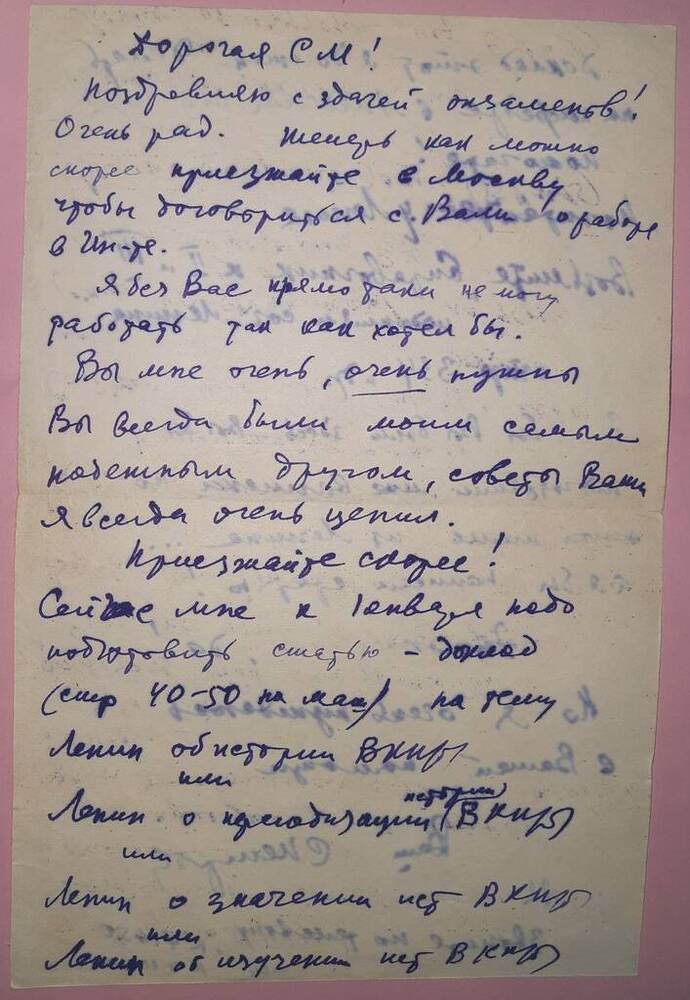 Дорогая С М!
Поздравляю с здачей экзаменов!
Очень рад. Теперь как можно
скорее приезжайте в Москву
чтобы договориться с Вами о работе
в Ин-те.
Я без Вас прямо таки не могу
работать так как хотел бы.
Вы мне очень, очень нужны
Вы всегда были моим самым
надежным другом, советы Ваши
я всегда очень ценил.
Приезжайте скорее!
Сейчас мне к 1 января надо
подготовить статью – доклад
(стр 40-50 на маш) на тему
Ленин об истории ВКП(б)
или
Ленин о периодизации истории ВКП(б)
или
Ленин о значении ист ВКП(б)
или
Ленин об изучении ист ВКП(б)